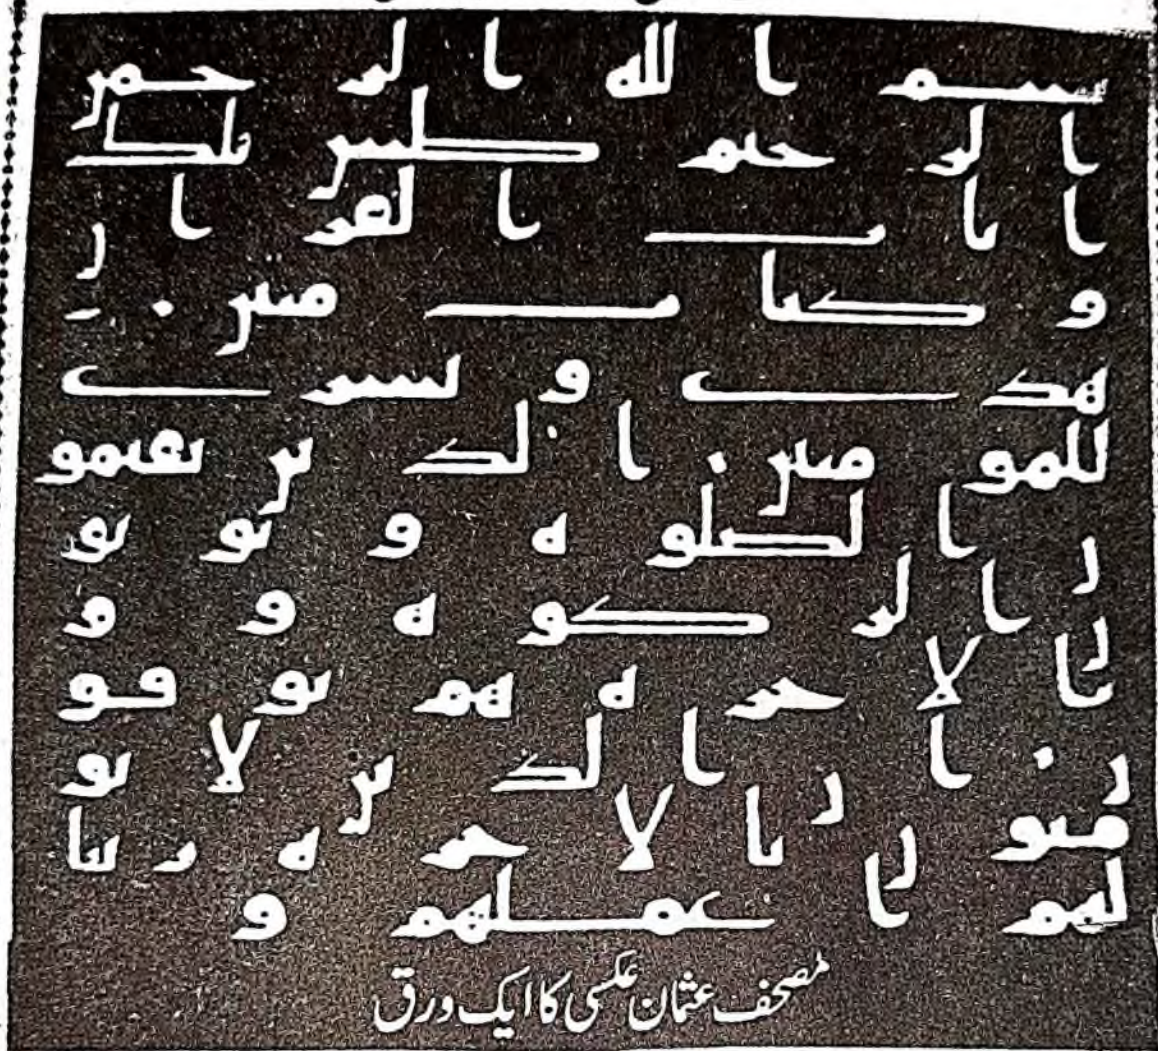 بسم الله الرحمن
الرحيم طس تلك
ايات القران
وكتاب مبين
هدى وبشرى
للمومنين الذين يقيمو
ن الصلوه ويوتو
ن الزكوه و و
بالاخره هم يوقنو
ن ان الذين لا يو
منون بالاخره زينا
لهم اعملهم و
مصحف عثمان عکسی کا ایک ورق